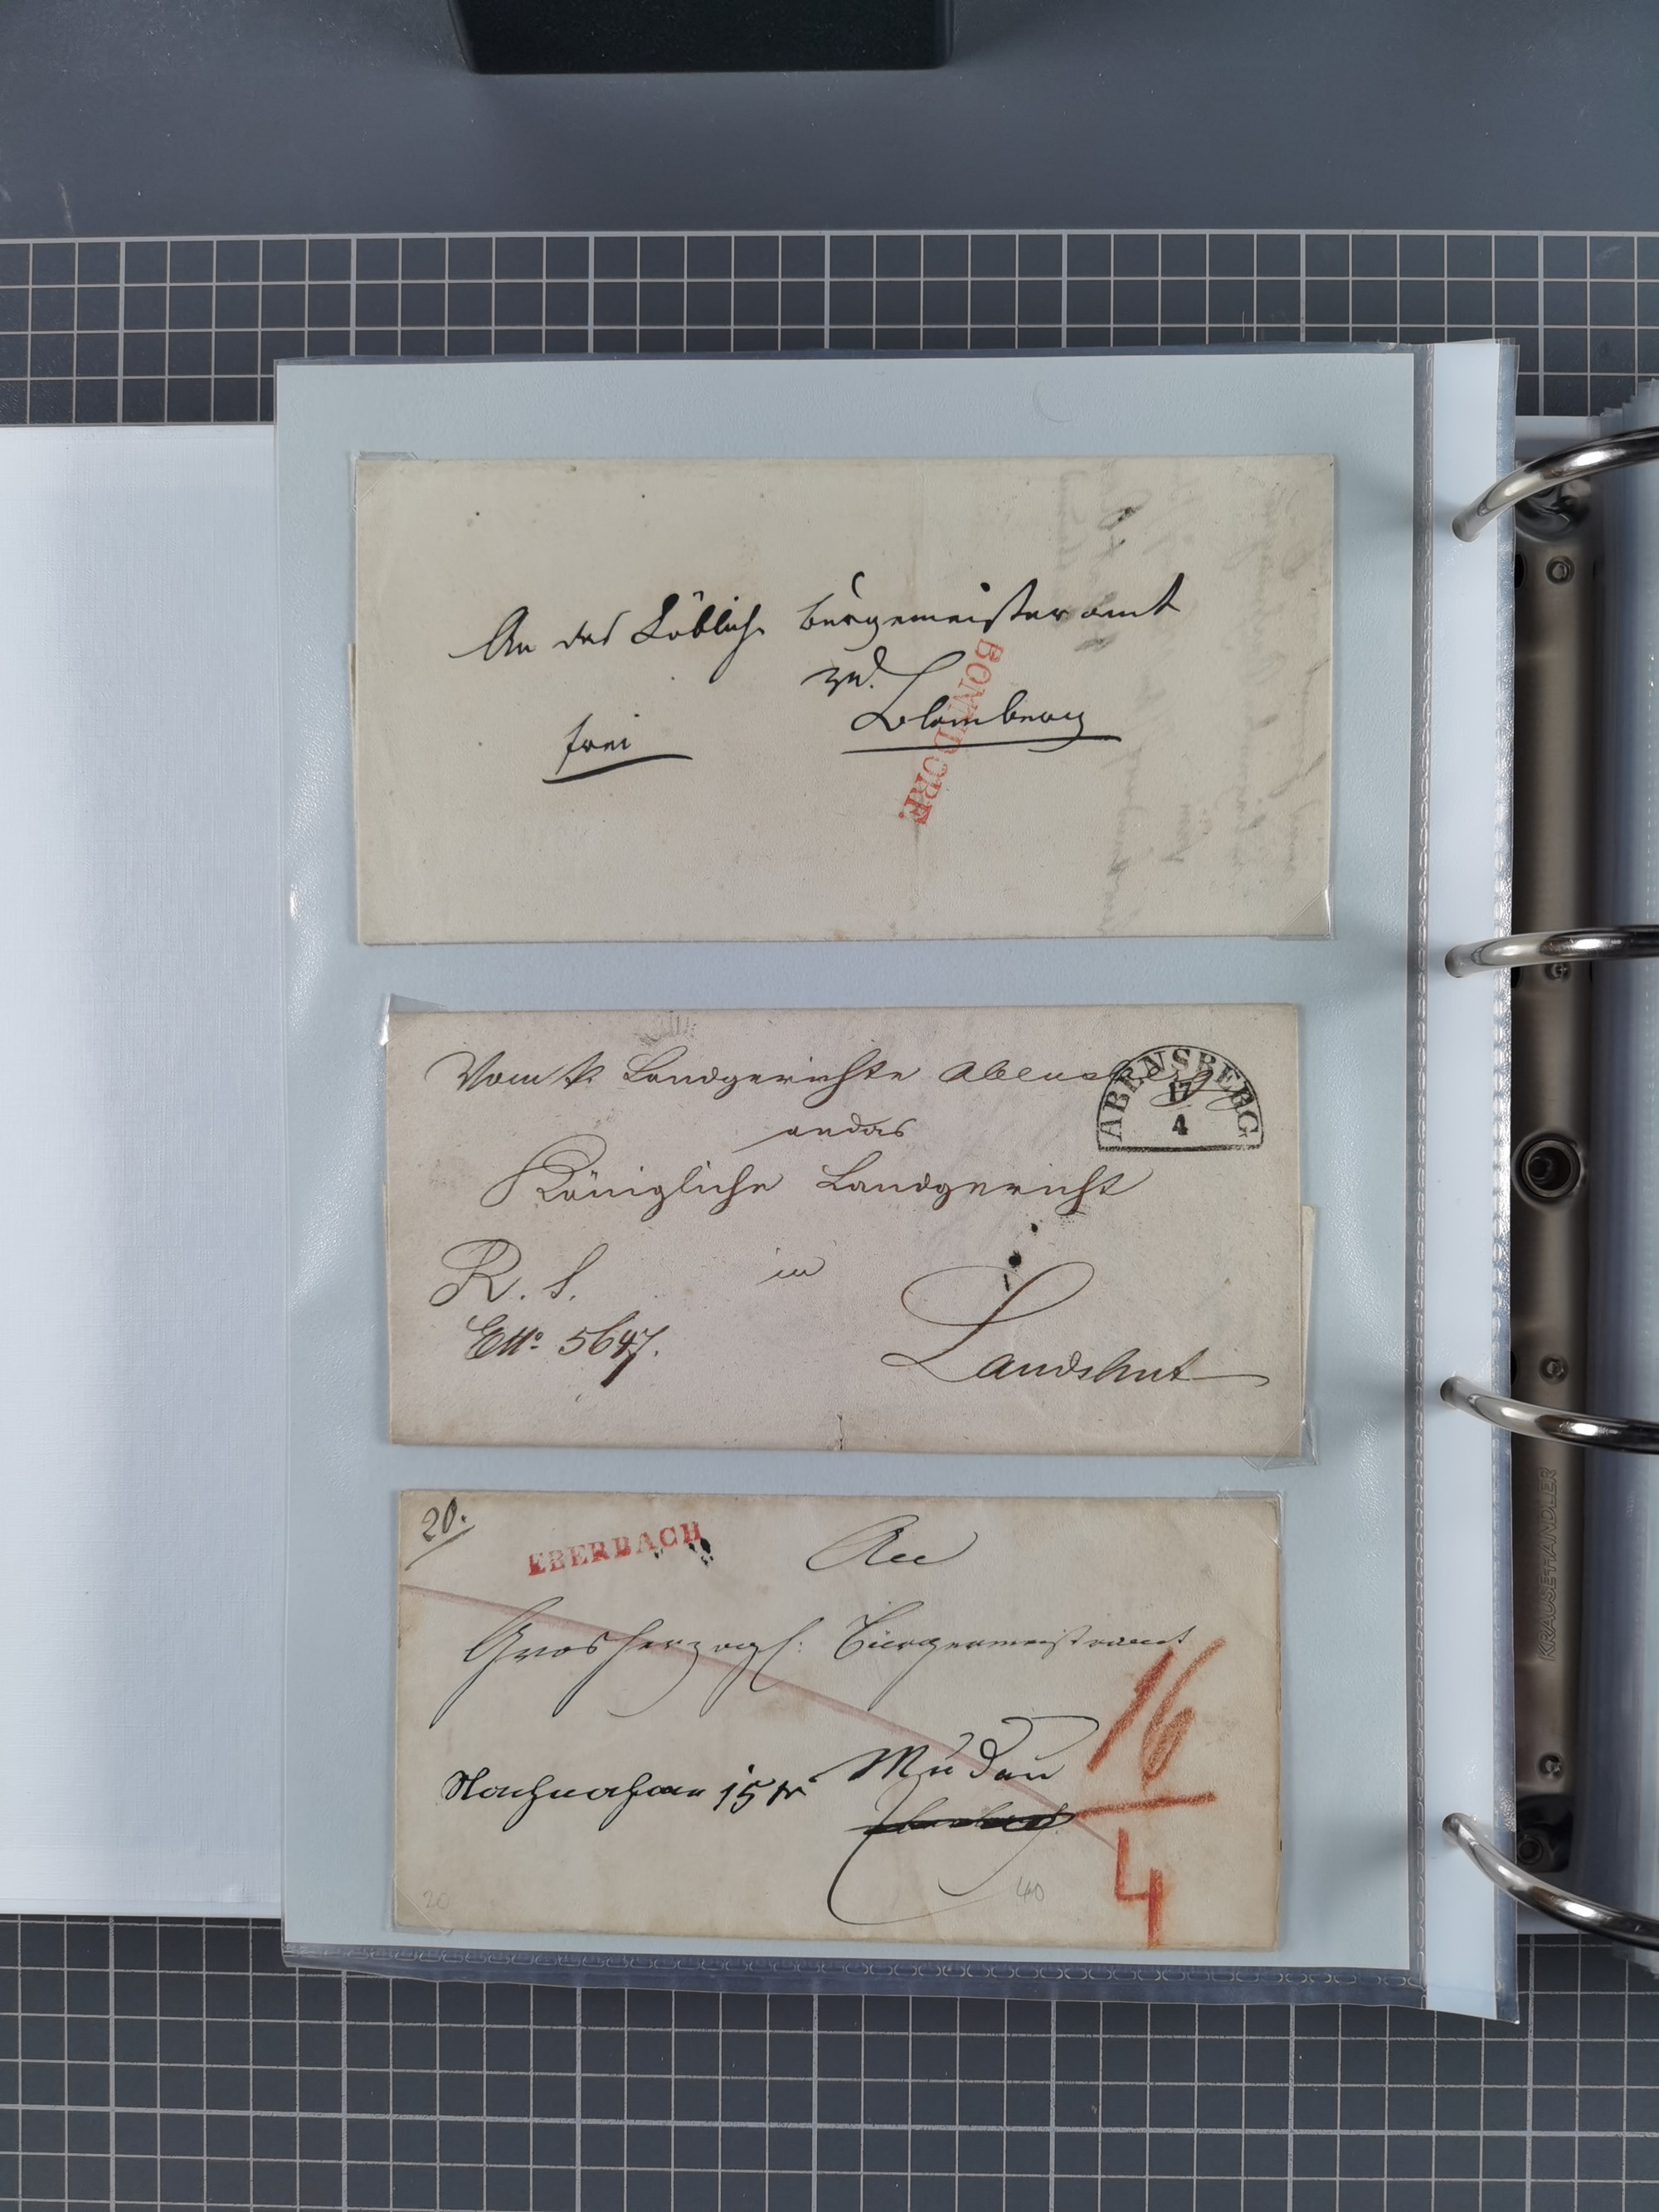 An das Löbliche Bürgemeisteramt
zu
Blomberg
frei
BONNDORF.
Vom k. Landgerichte Abensberg
an das
Königliche Landgericht
R. S.
in
E No 5647.
Landshut
ABENSBERG
17
4
20.
EBERBACH
An
Grosherzogl: Bürgermeisteramt
Mudau
Nachnahme 15 kr
16
4
20
40
KRAUSE HANDLER